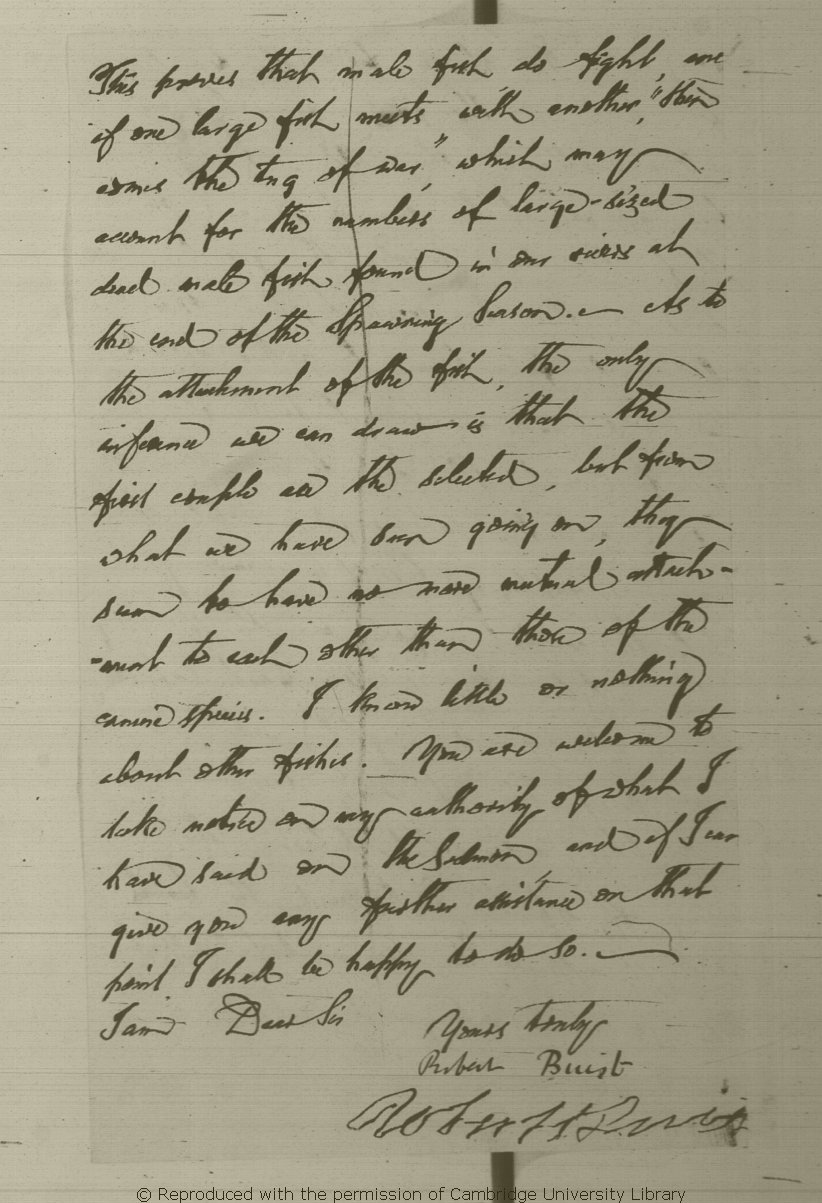 This proves that male fish do fight, and
if one large fish meets with another, "then
comes the tug of war," which may
account for the numbers of large-sized
dead male fish found in our rivers at
the end of the Spawning Season. — As to
the attachment of the fish, the only
inference we can draw is that the
first couple are the selected, but from
what we have seen going on, they
seem to have no more mutual attach-
-ment to each other than those of the
canine species. I know little or nothing
about other fishes. You are welcome to
take notice on my authority of what I
have said on the Salmon, and if I can
give you any further assistance on that
point I shall be happy to do so. —
I am Dear Sir
Yours truly
Robert Buist
Robert Buist
© Reproduced with the permission of Cambridge University Library